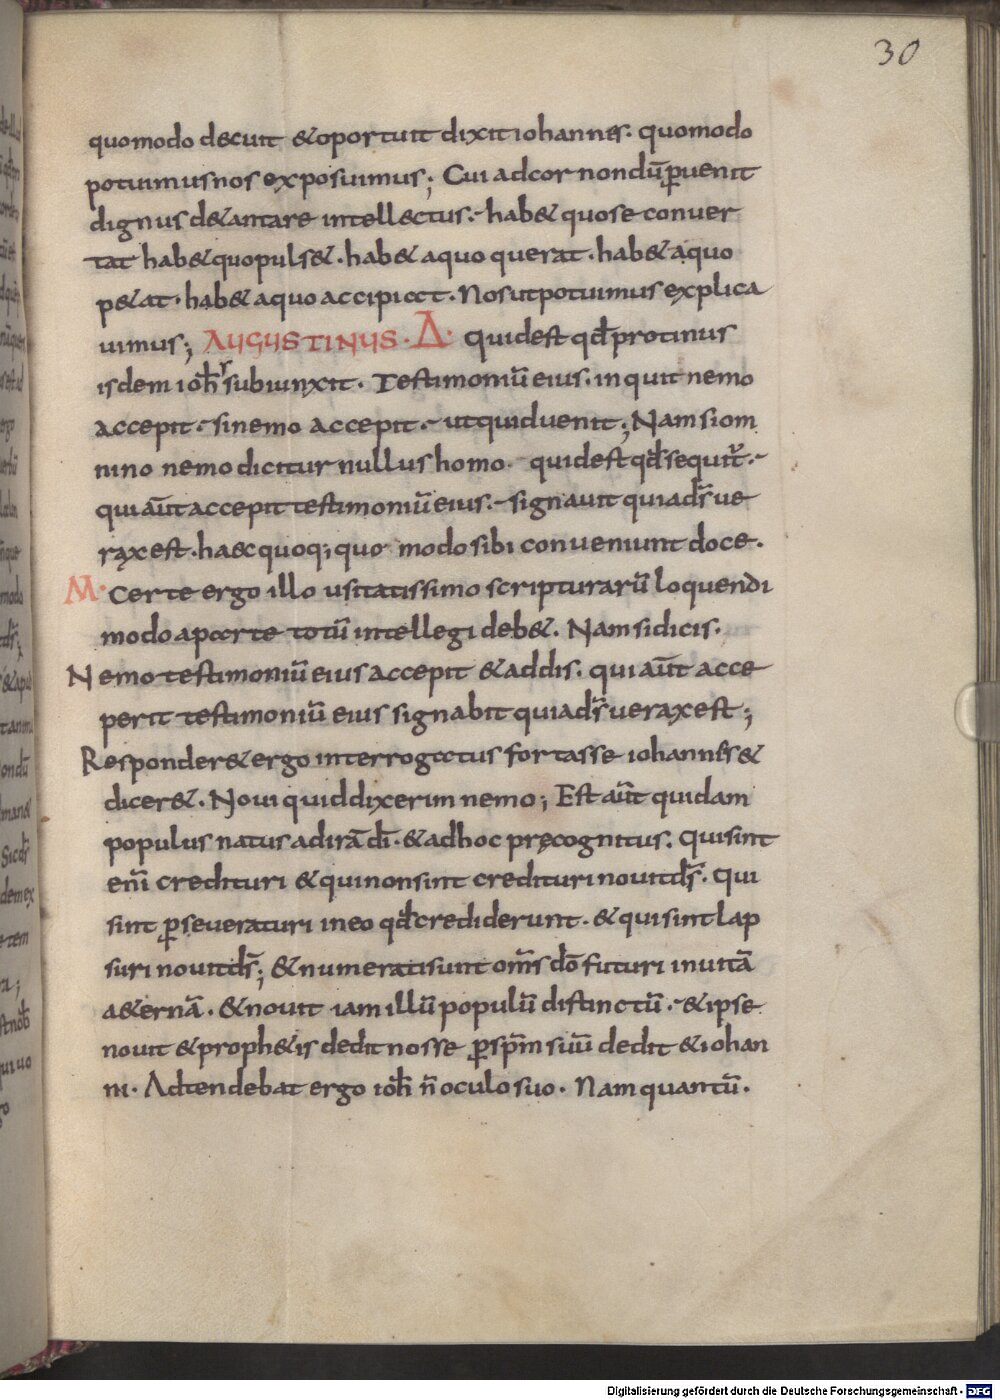 30
quomodo decuit & oportuit dixit iohannes. quomodo
potuimus nos exposuimus; Cui ad cor nondū ꝑuenit
dignus de&antare intellectus. hab& quo se conuer
tat hab& quo puls&. hab& a quo querat. hab& a quo
p&at. hab& a quo accipiat. Nos ut potuimus explica
uimus; AUGUSTINUS. Δ. Quid est qđ protinus
isdem ioħ subiunxit. Testimoniū eius. inquit nemo
accepit. si nemo accepit. ut quid uenit; Nam si om
nino nemo dicitur nullus homo. quid est qđ sequit̄.
qui aūt accepit testimoniū eius. signauit quia d̄s ue
rax est. haec quoq; quo modo sibi conueniunt doce.
M. Certe ergo illo usitatissimo scripturarū loquendi
modo aperte totū intellegi deb&. Nam si dicis.
Nemo testimoniū eius accepit & addis. qui aūt acce
perit testimoniū eius signabit quia d̄s uerax est;
Responder& ergo interrogatus fortasse iohannes &
dicer&. Noui quid dixerim nemo; Est aūt quidam
populus natus ad irā dī. & ad hoc pręcognitus. Qui sint
enī credituri & qui non sint credituri nouit d̄s. Qui
sint ꝑseueraturi in eo qđ crediderunt. & qui sint lap
suri nouit d̄s; & numerati sunt om̄s dō futuri in uitā
a&ernā. & nouit iam illū populū distinctū. & ipse
nouit & proph&is dedit nosse ꝑ sp̄m suū dedit & iohan
ni. Adtendebat ergo ioħ n̄ oculo suo. Nam quantū.
Digitalisierung gefördert durch die Deutsche Forschungsgemeinschaft - DFG